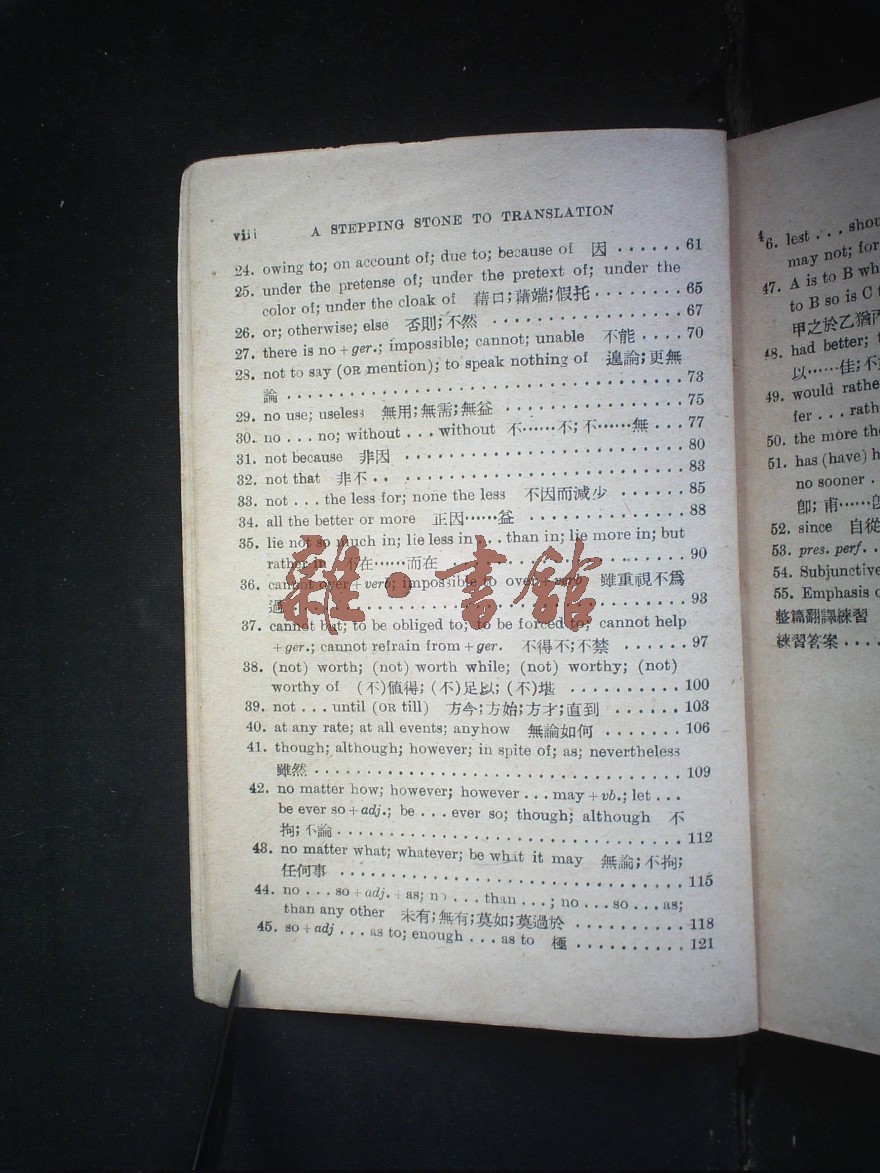 viii A STEPPING STONE TO TRANSLATION
24. owing to; on account of; due to; because of 因 ...... 61
25. under the pretense of; under the pretext of; under the
color of; under the cloak of 藉口; 藉端; 假托 ......... 65
26. or; otherwise; else 否則; 不然 .................. 67
27. there is no + ger.; impossible; cannot; unable 不能 .... 70
28. not to say (OR mention); to speak nothing of 遑論; 更無
論 .................................... 73
29. no use; useless 無用; 無需; 無益 ................. 75
30. no ... no; without ... without 不……不; 不……無 ... 77
31. not because 非因 ........................... 80
32. not that 非不 .............................. 83
33. not ... the less for; none the less 不因而減少 ...... 85
34. all the better or more 正因……益 ............... 88
35. lie not so much in; lie less in ... than in; lie more in; but
rather in 不在……而在 ....................... 90
36. cannot over + verb; impossible to over + verb 雖重視不爲
過 .................................... 93
37. cannot but; to be obliged to; to be forced to; cannot help
+ ger.; cannot refrain from + ger. 不得不; 不禁 ...... 97
38. (not) worth; (not) worth while; (not) worthy; (not)
worthy of (不)值得; (不)足以; (不)堪 ........... 100
39. not ... until (OR till) 方今; 方始; 方才; 直到 ...... 103
40. at any rate; at all events; anyhow 無論如何 ....... 106
41. though; although; however; in spite of; as; nevertheless
雖然 .................................. 109
42. no matter how; however; however ... may + vb.; let ...
be ever so + adj.; be ... ever so; though; although 不
拘; 不論 ................................ 112
43. no matter what; whatever; be what it may 無論; 不拘;
任何事 ................................ 115
44. no ... so + adj. + as; no ... than ...; no ... so ... as;
than any other 未有; 無有; 莫如; 莫過於 .......... 118
45. so + adj ... as to; enough ... as to 極 .......... 121
46. lest ...
may not; for
47. A is to B
to B so is C
甲之於乙猶
48. had better;
以……佳;
49. would
... rath
50. the more
51. has (have)
no sooner .
卽; 甫……
52. since 自從
53. pres. perf.
54. Subjunctive
55. Emphasis
整篇翻譯練習
練習答案 ....
雜·書館